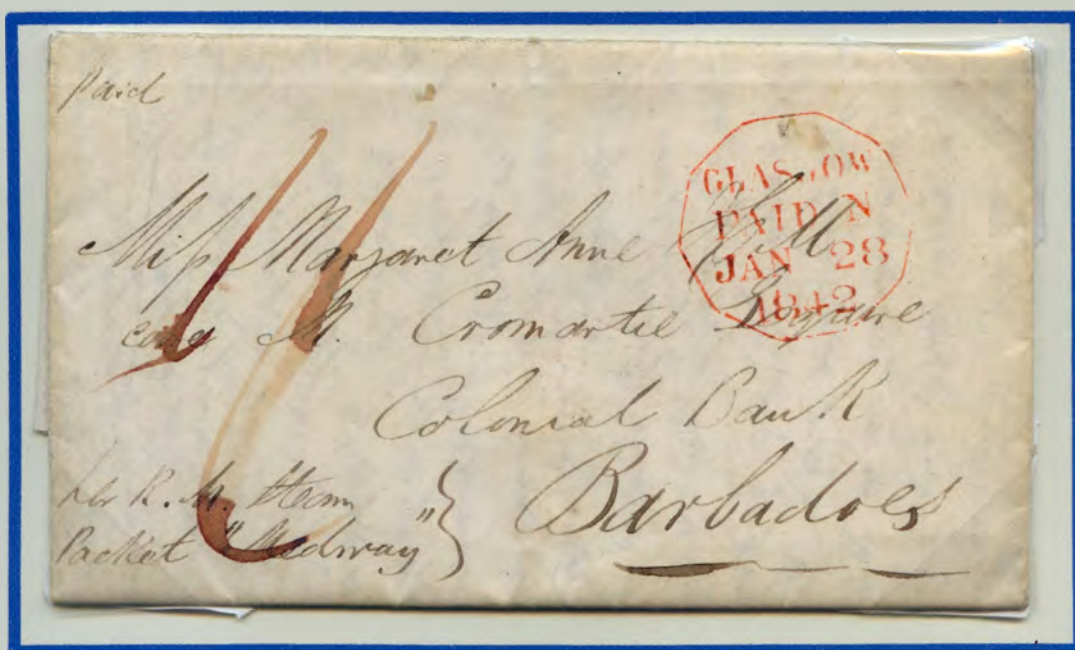 Paid
GLASGOW
PAID N
JAN 28
1842
Miss Margaret Anne
care M. Cromartie Esquire
Colonial Bank
Barbadoes
per R. M. Steam
Packet "Medway"